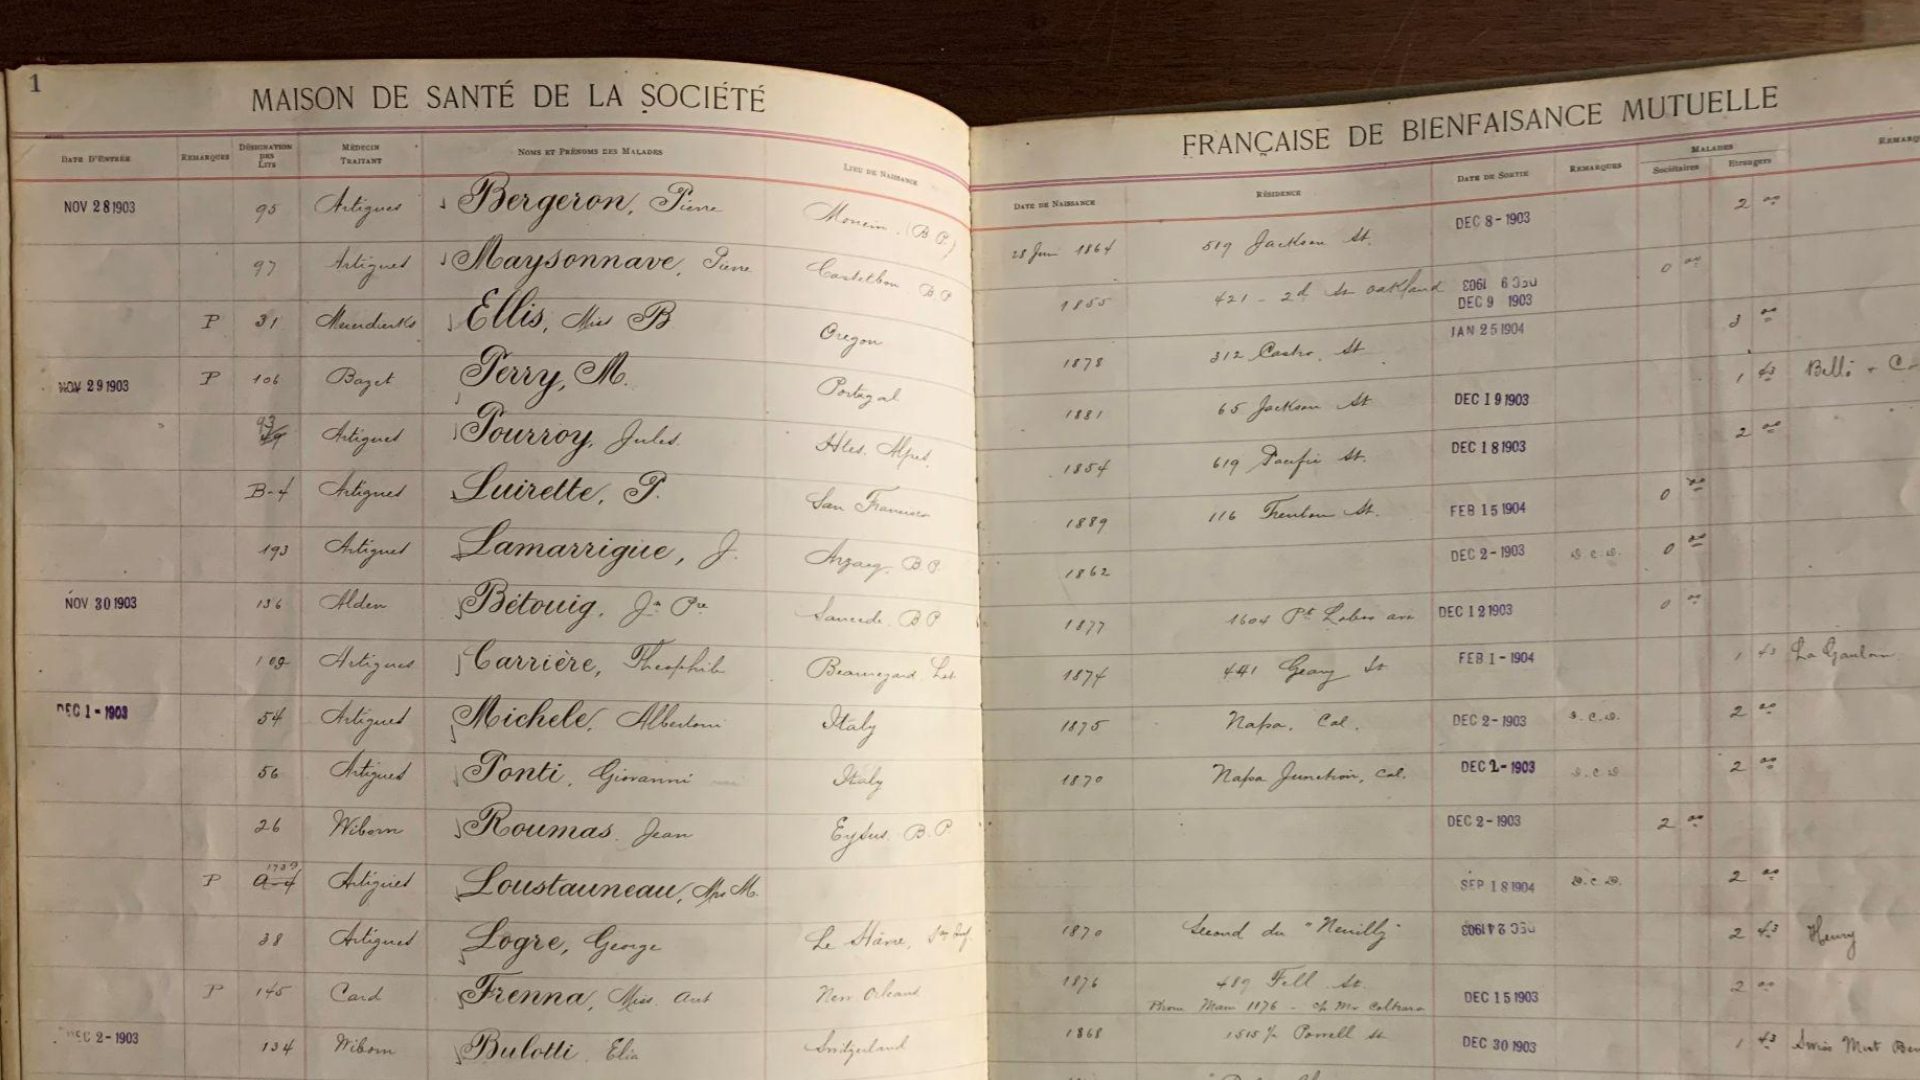 1
MAISON DE SANTÉ DE LA SOCIÉTÉ FRANÇAISE DE BIENFAISANCE MUTUELLE
DATE D'ENTRÉE REMARQUES DÉSIGNATION DES LITS MÉDECIN TRAITANT NOMS ET PRÉNOMS DES MALADES LIEU DE NAISSANCE DATE DE NAISSANCE RÉSIDENCE DATE DE SORTIE REMARQUES MALADES Sociétaires Etrangers
NOV 28 1903 95 Artigues Bergeron, Pierre Monein. (B.P.) 28 1864 519 Jackson St. DEC 8-1903 2 00
97 Artigues Maysonnave, Pierre B.P. 1855 421 - 2d St Oakland DEC 9 1903 DEC 9 1903 0 00
P 31 Ellis, Miss B Oregon 1878 312 Castro. St JAN 25 1904 3 00
NOV 29 1903 P 106 Bazet Perry, M. Portugal 1881 65 Jackson St DEC 19 1903 1 43
93 Artigues Pourroy, Jules. Htes. Alpes. 1854 619 Pacific St. DEC 18 1903 2 00
B-4 Artigues Luirette, P. San Francisco 1889 116 Trenton St. FEB 15 1904 0 00
193 Artigues Lamarrigue, J. Arzacq. B.P. 1862 DEC 2-1903 0 00
NOV 30 1903 136 Alden Bétouig, Jn Pre B.P 1877 1604 Pt Lobos ave DEC 12 1903 0 00
109 Artigues Carrière, Theophile Beauregard Lot 1874 441 Geary St FEB 1-1904 1 43 La
DEC 1-1903 54 Artigues Michele, Albertoni Italy 1875 Napa. Cal. DEC 2-1903 2 00
56 Artigues Ponti, Giovanni Italy 1870 Napa Junction, Cal. DEC 2-1903 2 00
26 Wiborn Roumas. Jean B.P DEC 2-1903 2 00
P Artigues Loustauneau, Mrs M. SEP 18 1904 D.C.D. 2 00
38 Artigues Logre, George Le Hâvre, 1870 Second du "Neuilly" DEC 24 1903 2 43 Henry
P 145 Card Frenna, Miss. Ant New Orleans 1876 489 Fell St. DEC 15 1903 2 00
Phone Main 1176 - c/o Mr
DEC 2-1903 134 Wiborn Bulotti Elia Switzerland 1868 1515 1/2 Powell St DEC 30 1903 1 43 Swiss Mut Ben